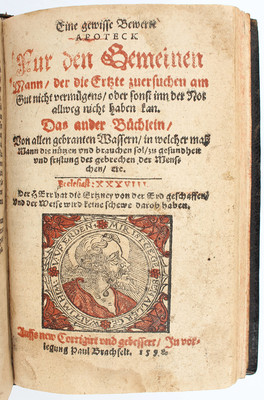 Eine gewisse Bewerte
APOTECK
Fur den Gemeinen
Mann / der die Ertzte zuersuchen am
Gut nicht vermügens / oder sonst inn der Not
allweg nicht haben kan.
Das ander Büchlein /
Von allen gebranten Wassern / in welcher maß
Mann die nützen und brauchen sol / zu gesundheit
und fristung der gebrechen der Mens-
chen / etc.
Ecclesiast: XXXVIII.
Der HErr hat die Ertzney von der Erd geschaffen /
Und der Weise wird keine schewe darob haben.
Auffs new Corrigirt und gebessert / In vor-
legung Paul Brachfelt. 159